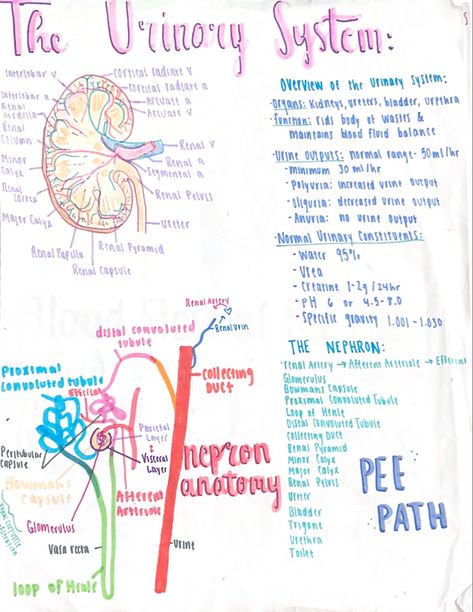 The Urinary System:
Interlobar V
Interlobar a
Renal Medulla
Renal Column
Minor Calyx
Renal Cortex
Major Calyx
Renal Papilla
Renal Capsule
Renal Pyramid
Cortical radiate V
Cortical radiate a
Arcuate a
Arcuate V
Renal V
Renal a
Segmental a
Renal Pelvis
Ureter
Overview of the urinary system:
· Organs: kidneys, ureters, bladder, urethra
· function: rids body of wastes &
maintains blood fluid balance
· Urine outputs: normal range - 50ml/hr
- minimum 30 ml/hr
- Polyuria: increased urine output
- oliguria: decreased urine output
- Anuria: no urine output
· Normal Urinary Constituents:
- Water 95%
- Urea
- Creatine 1-2g/24hr
- PH 6 or 4.5-8.0
- Specific gravity 1.001-1.030
THE NEPHRON:
Renal Artery → Afferent Arteriole → Efferent
Glomerulus
Bowmans Capsule
Proximal Convoluted Tubule
Loop of Henle
Distal Convoluted Tubule
Collecting Duct
Renal Pyramid
Minor Calyx
Major Calyx
Renal Pelvis
Ureter
Bladder
Trigone
Urethra
Toilet
PEE
PATH
Renal Artery
Renal Vein
distal convoluted
tubule
collecting
DUCT
Proximal
Convoluted tubule
Efferent
Parietal
Layer
Visceral
Layer
Peritubular
capsule
Bowman's
capsule
Afferent
Arteriole
Glomerulus
Vasa recta
loop of Henle
Urine
nepron
anatomy